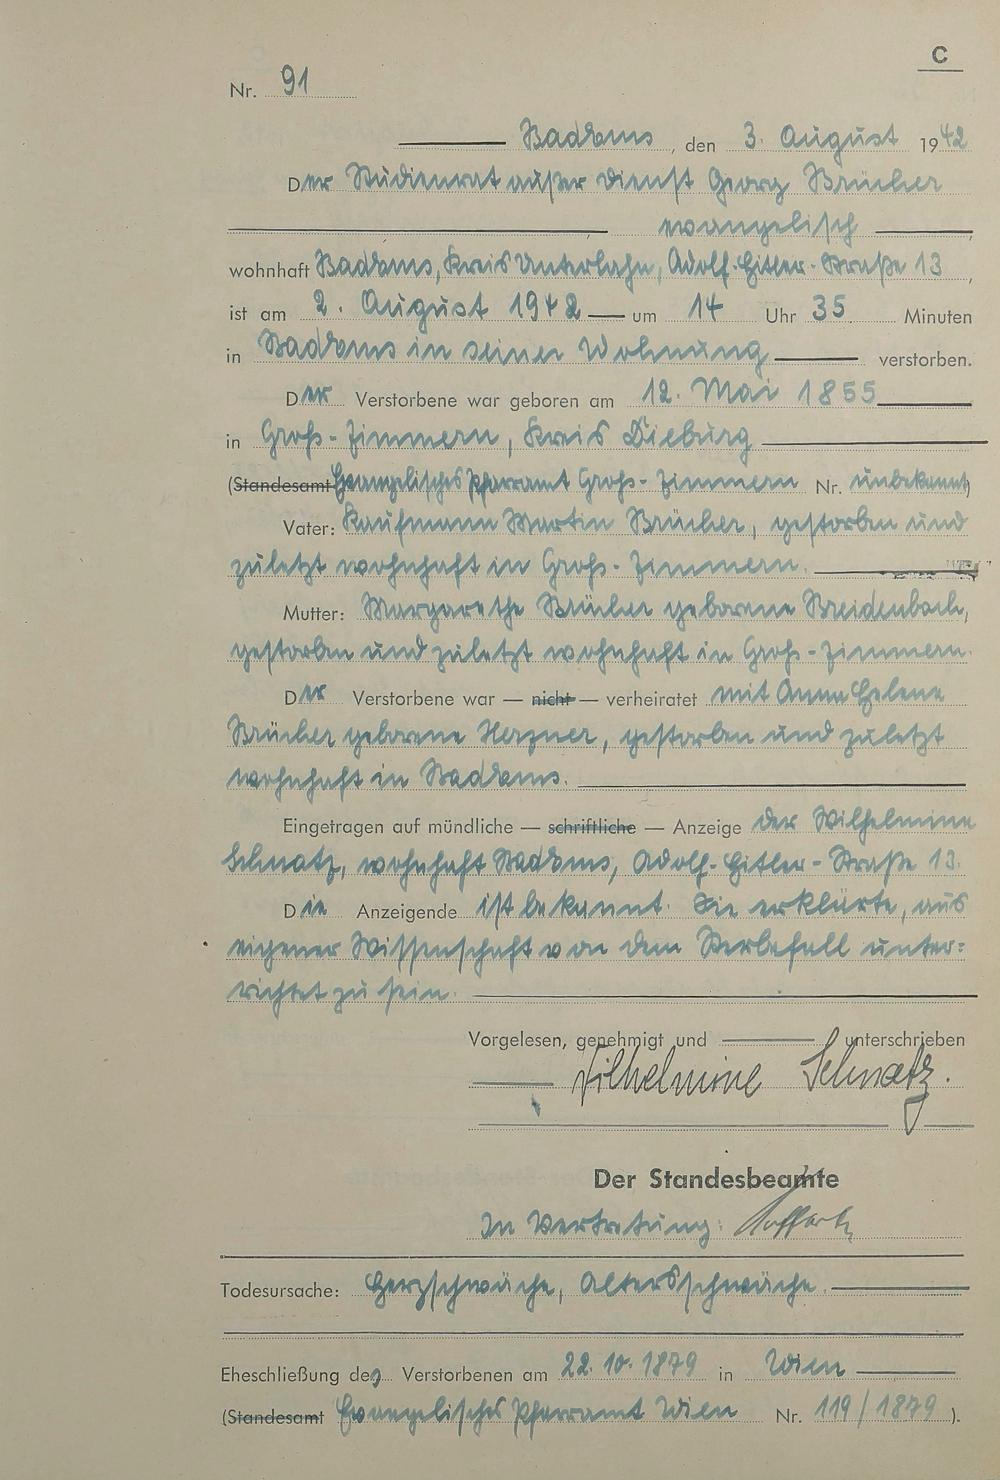 C
Nr. 91
Bad Ems, den 3. August 1942
Der Studienrat außer Dienst Georg Brücher
evangelisch
wohnhaft Bad Ems, Kreis Unterlahn, Adolf-Hitler-Straße 13,
ist am 2. August 1942 um 14 Uhr 35 Minuten
in Bad Ems in seiner Wohnung verstorben.
Der Verstorbene war geboren am 12. Mai 1855
in Groß-Zimmern, Kreis Dieburg
(Standesamt Evangelisches Pfarramt Groß-Zimmern Nr. unbekannt)
Vater: Kaufmann Martin Brücher, gestorben und
zuletzt wohnhaft in Groß-Zimmern.
Mutter: Margarethe Brücher geborene Breidenbach,
gestorben und zuletzt wohnhaft in Groß-Zimmern.
Der Verstorbene war — nicht — verheiratet mit Anna Helene
Brücher geborene Herzner, gestorben und zuletzt
wohnhaft in Bad Ems.
Eingetragen auf mündliche — schriftliche — Anzeige der Wilhelmine
Schnatz, wohnhaft Bad Ems, Adolf-Hitler-Straße 13.
Die Anzeigende ist bekannt. Sie erklärte, aus
eigener Wissenschaft von dem Sterbefall unter-
richtet zu sein.
Vorgelesen, genehmigt und unterschrieben
Wilhelmine Schnatz.
Der Standesbeamte
In Vertretung:
Todesursache: Herzschwäche, Altersschwäche.
Eheschließung des Verstorbenen am 22.10.1879 in Wien
(Standesamt Evangelisches Pfarramt Wien Nr. 119/1879).